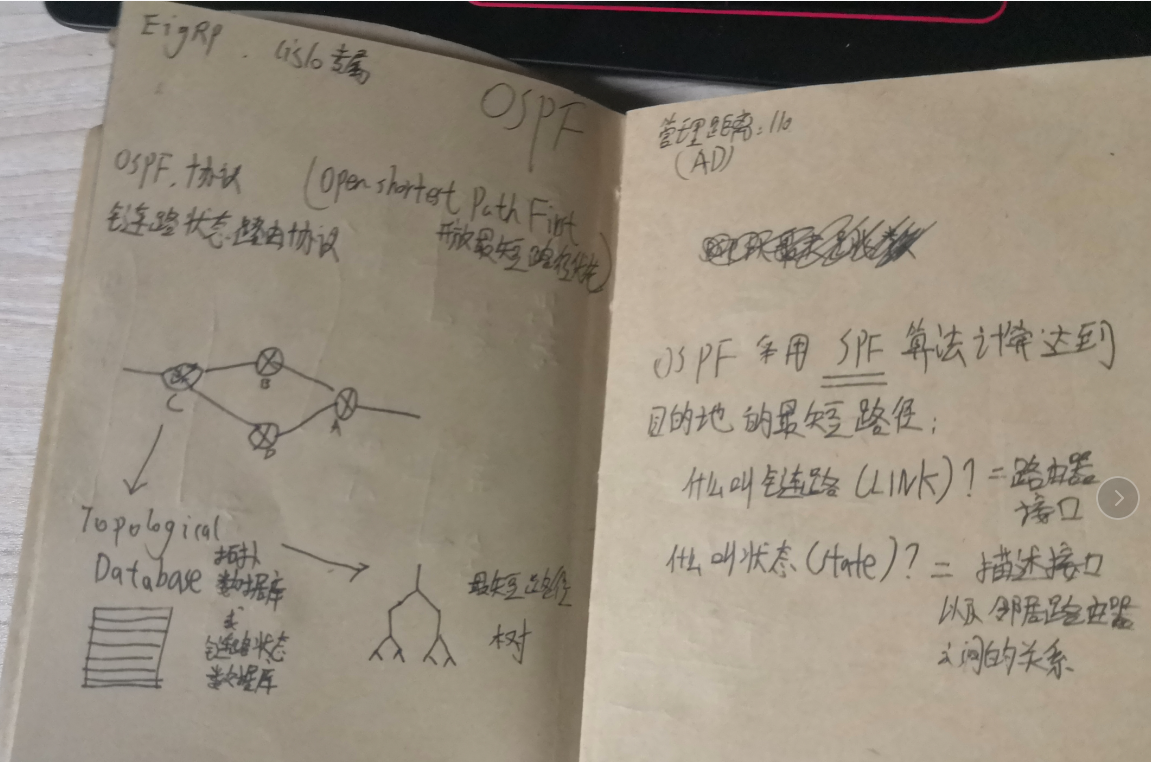 EigRp. Cislo专属
OSPF
OSPF.协议
(Open shortest Path First
链路状态路由协议
开放最短路径优先)
B
C
A
D
Topological
Database
拓扑
数据库
或
链路状态
数据库
最短路径
树
管理距离:110
(AD)
OSPF采用SPF算法计算达到
目的地的最短路径;
什么叫链路(LINK)?=路由器
接口
什么叫状态(state)?=描述接口
以及邻居路由器
之间的关系.